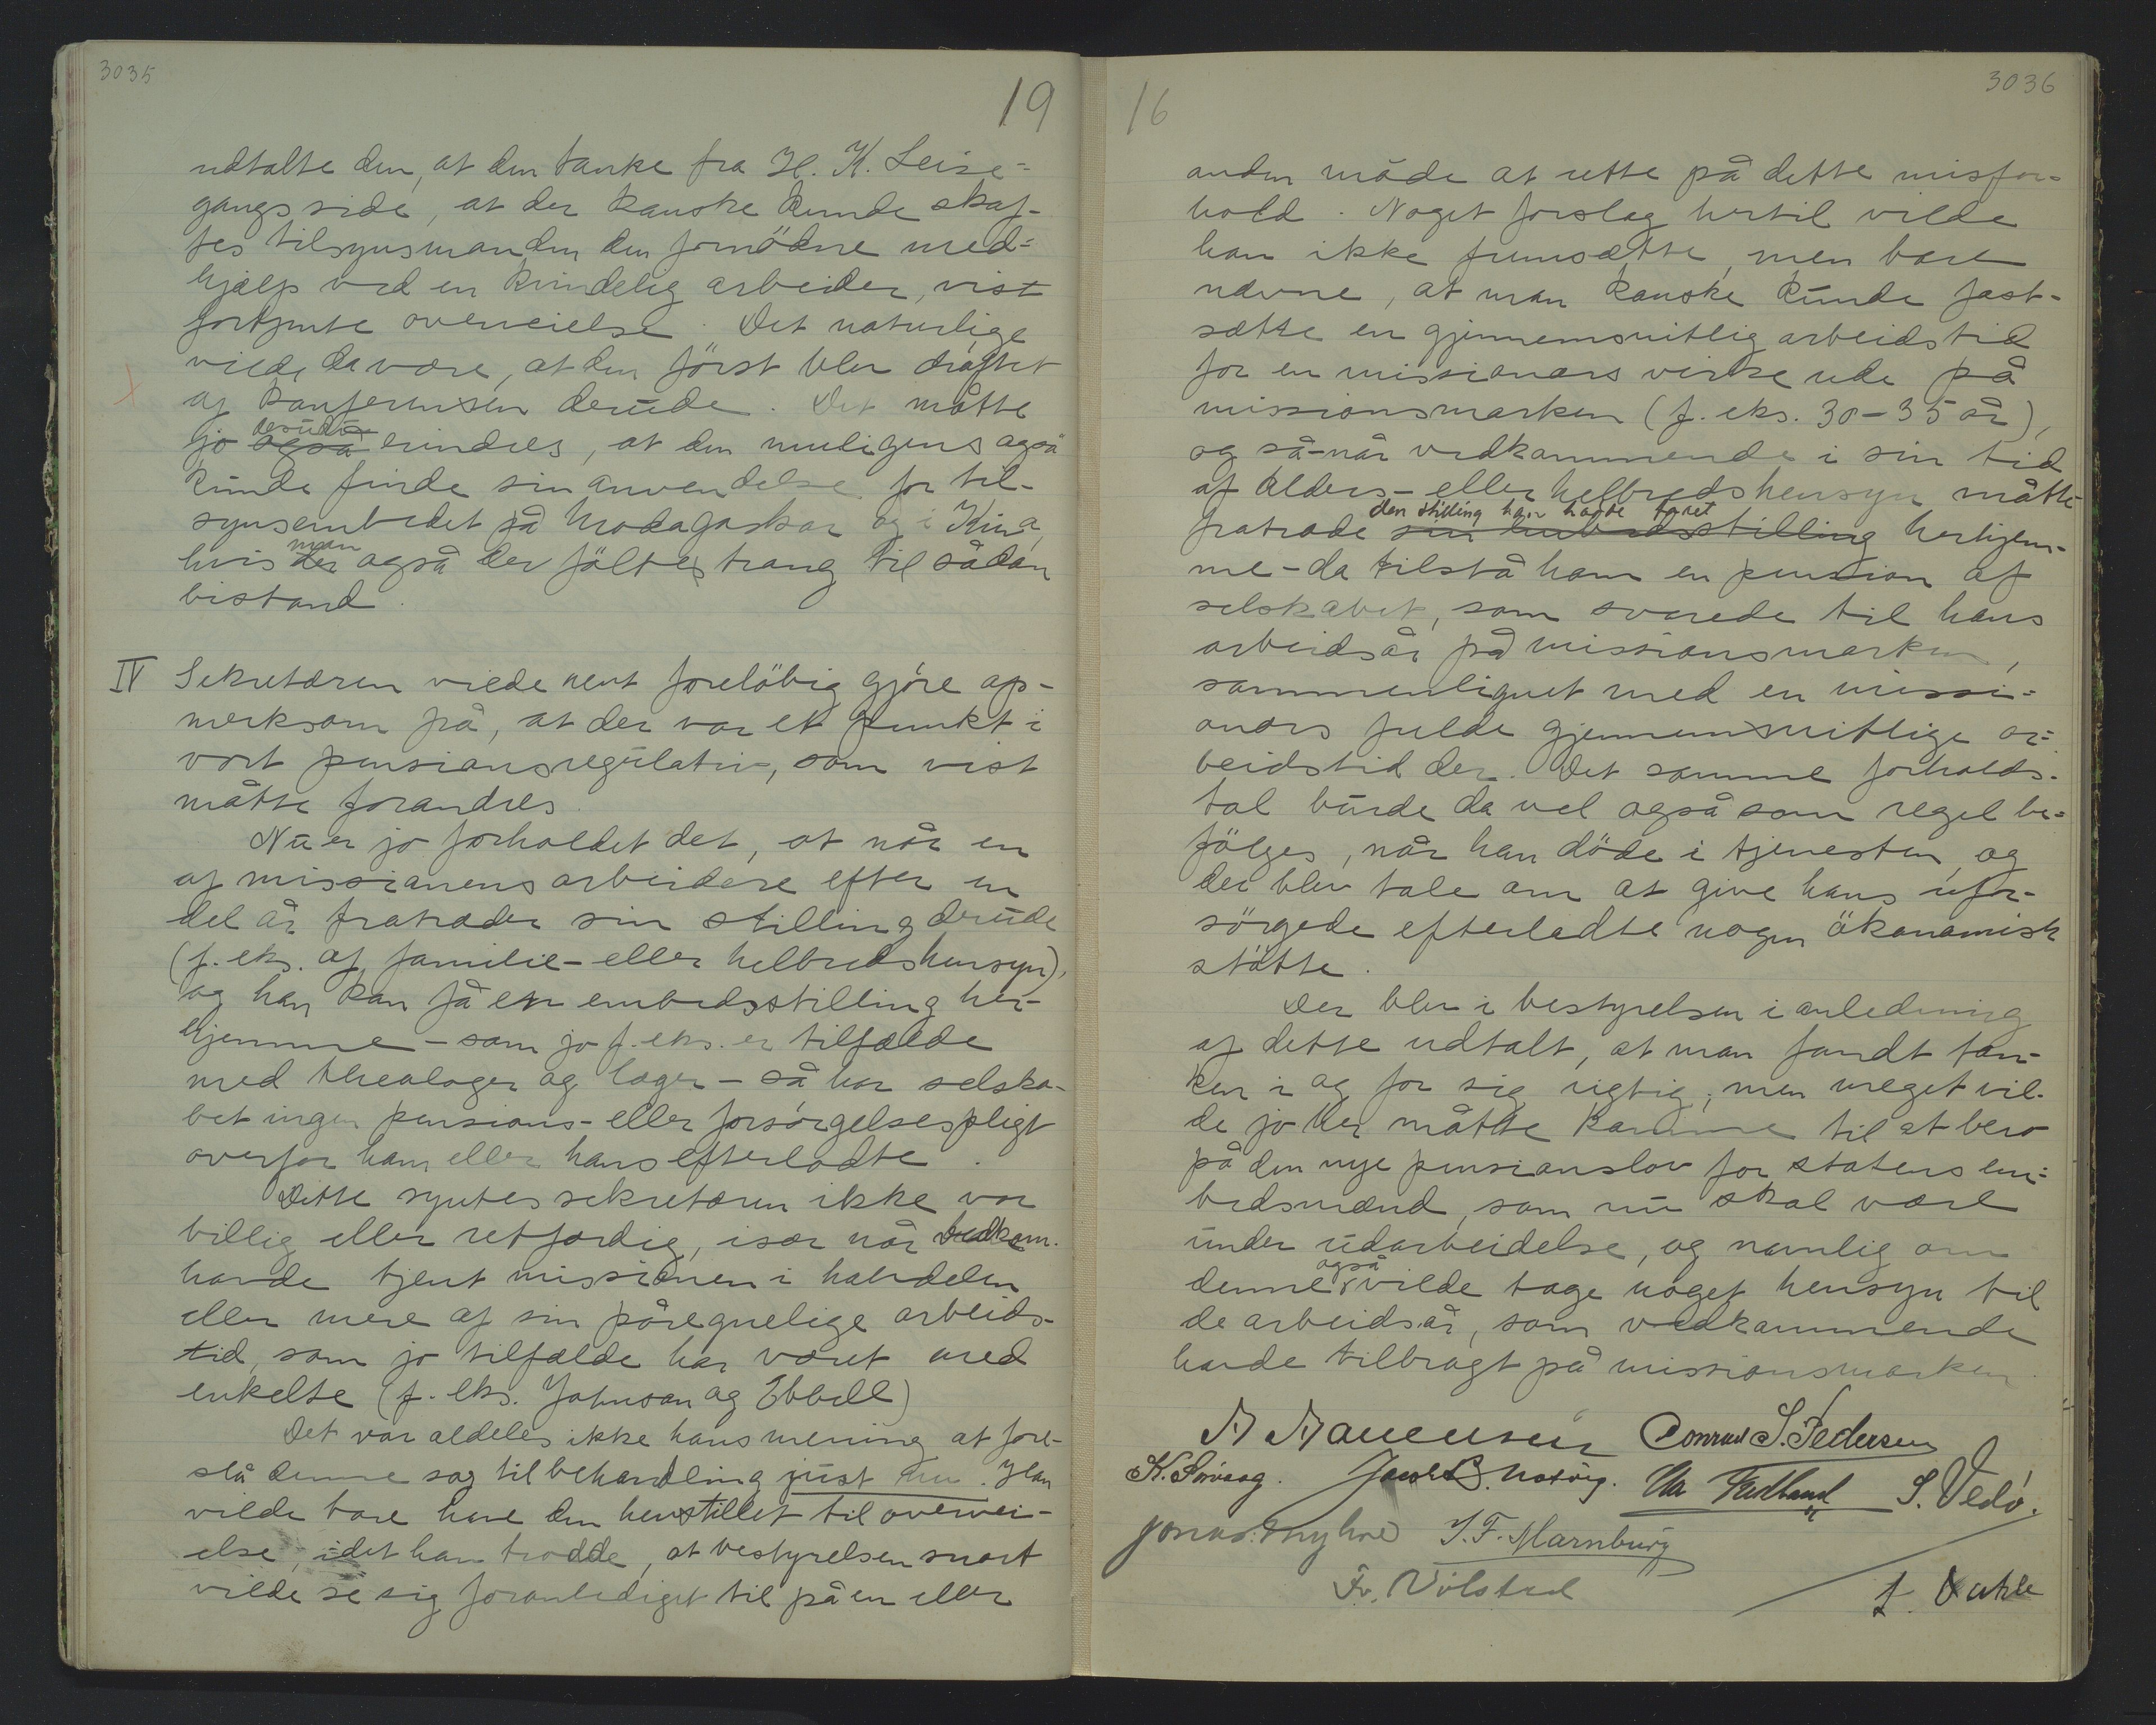 3035
19
udtalte den, at den tanke fra H. K. Leise=
gangs side, at der kanske kunde skaf-
fes tilsynsmanden den fornødne med=
hjælp ved en kvindelig arbeider, vist
fortjente overveielse. Det naturlige
vilde da være, at den först blev dröftet
af konferensen derude. Det måtte
jo også erindres, at den muligens også
kunde finde sin anvendelse for til-
synsembedet på Madagaskar og i Kina,
hvis man også der fölte trang til sådan
bistand.
IV Sekretæren vilde nevt foreløbig gjöre op-
merksom på, at der var et punkt i
vort pensionsregulativ, som vist
måtte forandres.
Nu er jo forholdet det, at når en
af missionens arbeidere efter en
del år fratræder sin stilling derude
(f. eks. af familie- eller helbredshensyn),
og han kan få en embedsstilling her-
hjemme – som jo f. eks. er tilfælde
med theologer og læger – så har selska-
bet ingen pensions- eller forsörgelsespligt
overfor ham eller hans efterladte.
Dette syntes sekretæren ikke var
billig eller retfærdig, især når vedkom.
havde tjent missionen i halvdelen
eller mere af sin påregnelige arbeids-
tid, som jo tilfælde har været med
enkelte (f. eks. Johnson og Ebbell)
Det var aldeles ikke hans mening at fore-
slå denne sag til behandling just nu. Han
vilde bare have den henstillet til overvei-
else, idet han trodde, at bestyrelsen snart
vilde se sig foranlediget til på en eller
16
3036
anden måde at rette på dette misfor-
hold. Noget forslag hertil vilde
han ikke fremsætte, men bare
nævne, at man kanske kunde fast-
sætte en gjennemsnitlig arbeidstid
for en missionærs virke ude på
missionsmarken (f. eks. 30-35 år),
og så – når vedkommende i sin tid
af alders- eller helbredshensyn måtte
den stilling han havde faret
fratræde sin embedsstilling herhjem-
me – da tilstå ham en pension af
selskabet, som svarede til hans
arbeidsår på missionsmarken,
sammenlignet med en missi=
onærs fulde gjennemsnitlige ar=
beidstid der. Det samme forholds-
tal burde da vel også som regel be=
fölges, når han döde i tjenesten, og
der blev tale om at give hans ufor-
sörgede efterladte nogen ökonomisk
stötte.
Der blev i bestyrelsen i anledning
af dette udtalt, at man fandt tan-
ken i og for sig rigtig; men meget vil-
de jo her måtte komme til at bero
på den nye pensionslov for statens em=
bedsmænd, som nu skal være
under udarbeidelse, og navnlig om
denne også vilde tage noget hensyn til
de arbeidsår, som vedkommende
havde tilbragt på missionsmarken.
Conrad S. Pedersen
K. Sörvaag. S. Vedö.
J. F. Marnburg
Fr. Völsted